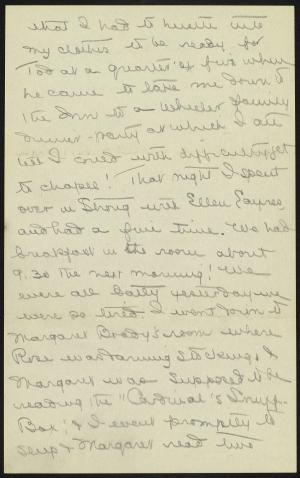 that I had to hustle into
my clothes to be ready for
Tod at a quarter of five when
he came to take me down to
the Inn to a Wheeler family
dinner-party at which I ate
till I could with difficulty get
to chapel! That night I spent
over in Strong with Ellen Eayres
and had a fine time. We had
breakfast in the room about
9.30 the next morning! We
were all batty yesterday we
were so tired. I went down to
Margaret Brady's room where
Rose was darning stockings &
Margaret was supposed to be
reading the "Cardinal's Snuff-
Box", & I went promptly to
sleep & Margaret read two